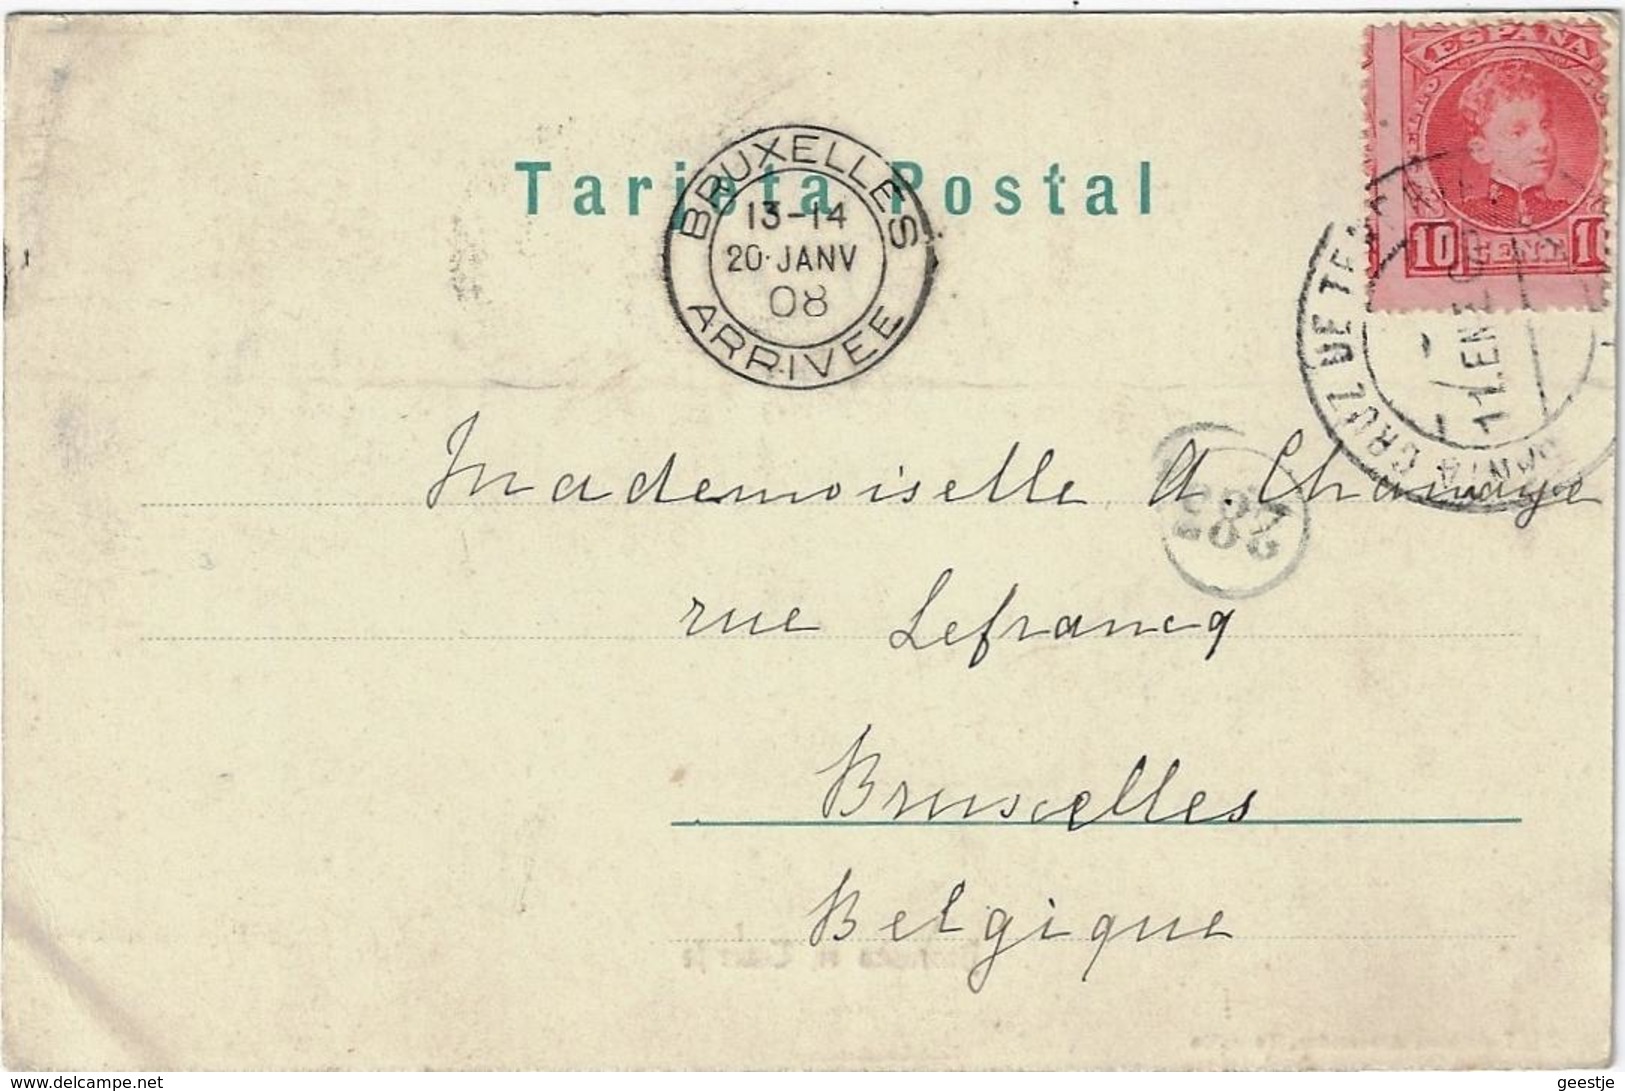 ESPAÑA
10 CENT. 10
Tarjeta Postal
BRUXELLES
13-14
20·JANV
08
ARRIVEE
SANTA CRUZ DE TENERIFE
11.ENE.08
Mademoiselle A. Chamaye
282
rue Lefrancq
Bruxelles
Belgique
www.delcampe.net
geestje